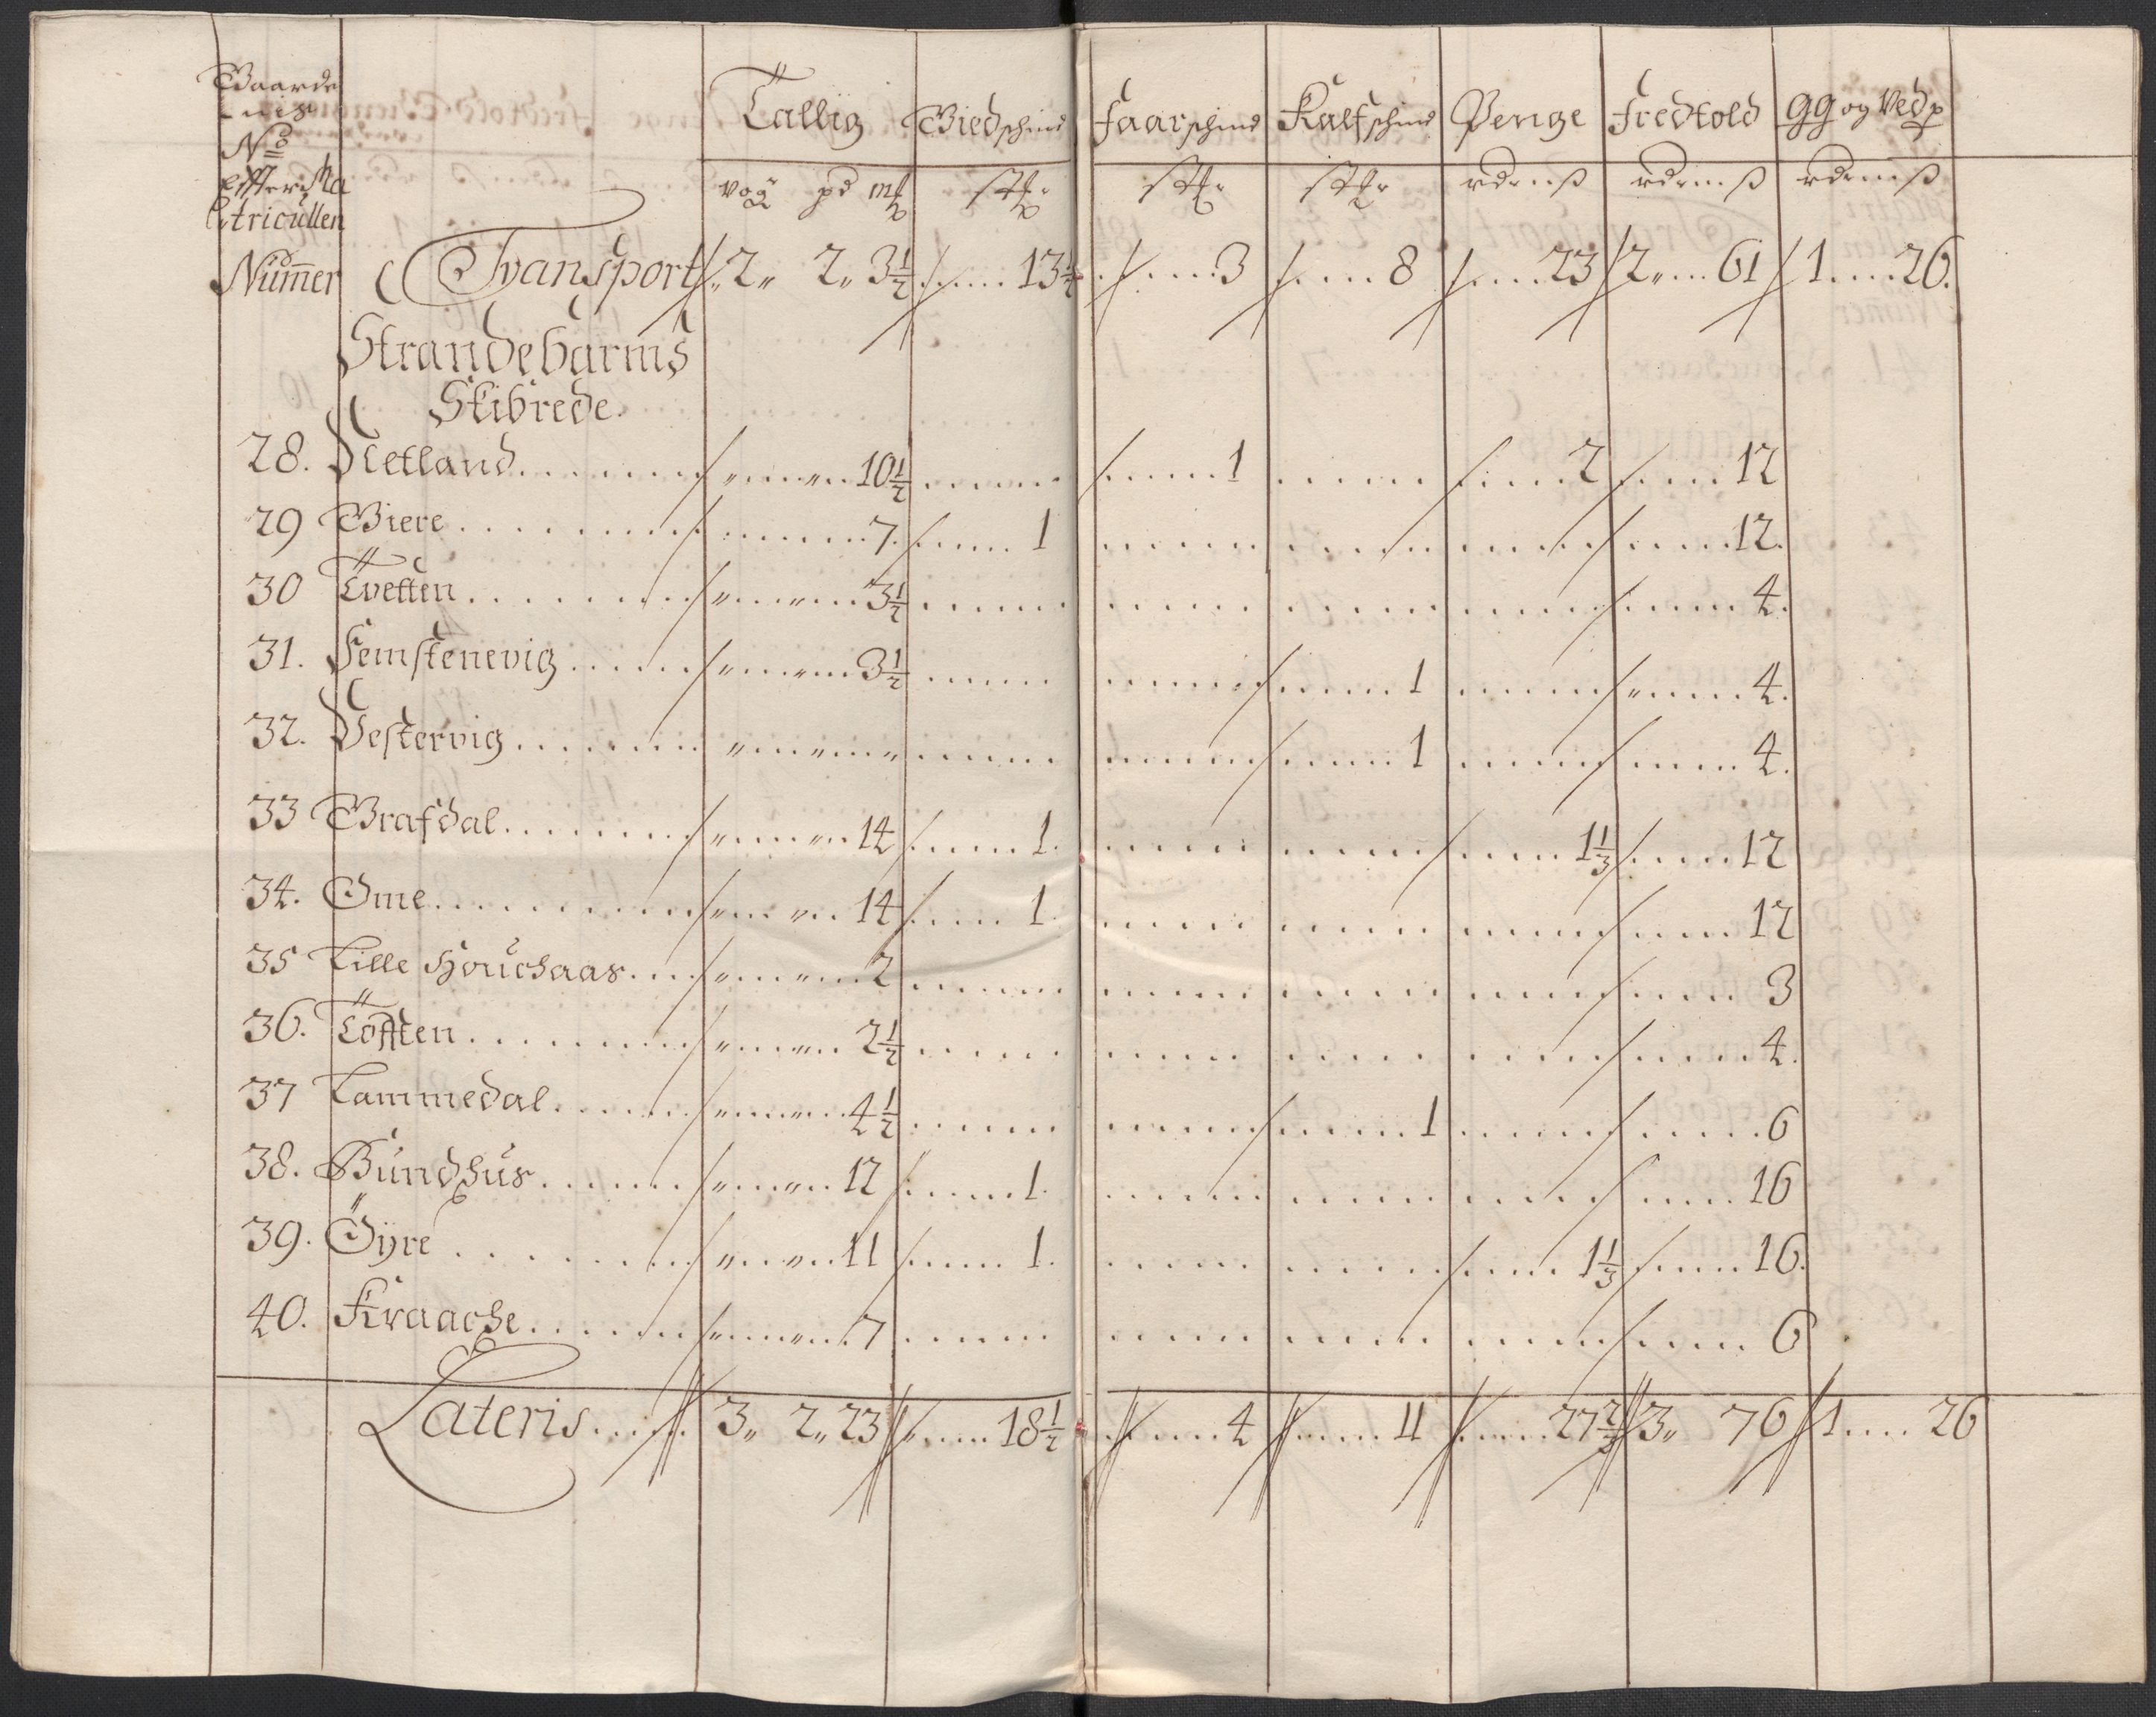 Gaarde
Nº
Effter Ma
tricullen
Nummer
Tallig Giedschind Faarschind Kalfschind Penge Fredtold gg og Vedp
vog pd mk stk stk stk rd ß rd ß rd ß
Transport 2 2 3½ 13½ 3 8 23 2 61 1 26.
Strandebarms
Skibrede.
28. Netland 10½ 1 2 12
29 Giere 7. 1 12.
30 Tvetten 3½ 4.
31. Femstenevig 3½ 1 4.
32. Vestervig 1 4.
33 Grafdal 14 1. 1⅓ 12
34. Ome 14 1. 12
35 Lille Houchaas 2 3
36. Töfften 2½ 4.
37 Lammedal 4½ 1 6
38. Bundhus 12 1. 16
39. Öÿre 11 1. 1⅓ 16.
40. Kraache 7 6
Lateris 3 2 23 18½ 4 11 27⅔ 3 76 1 26